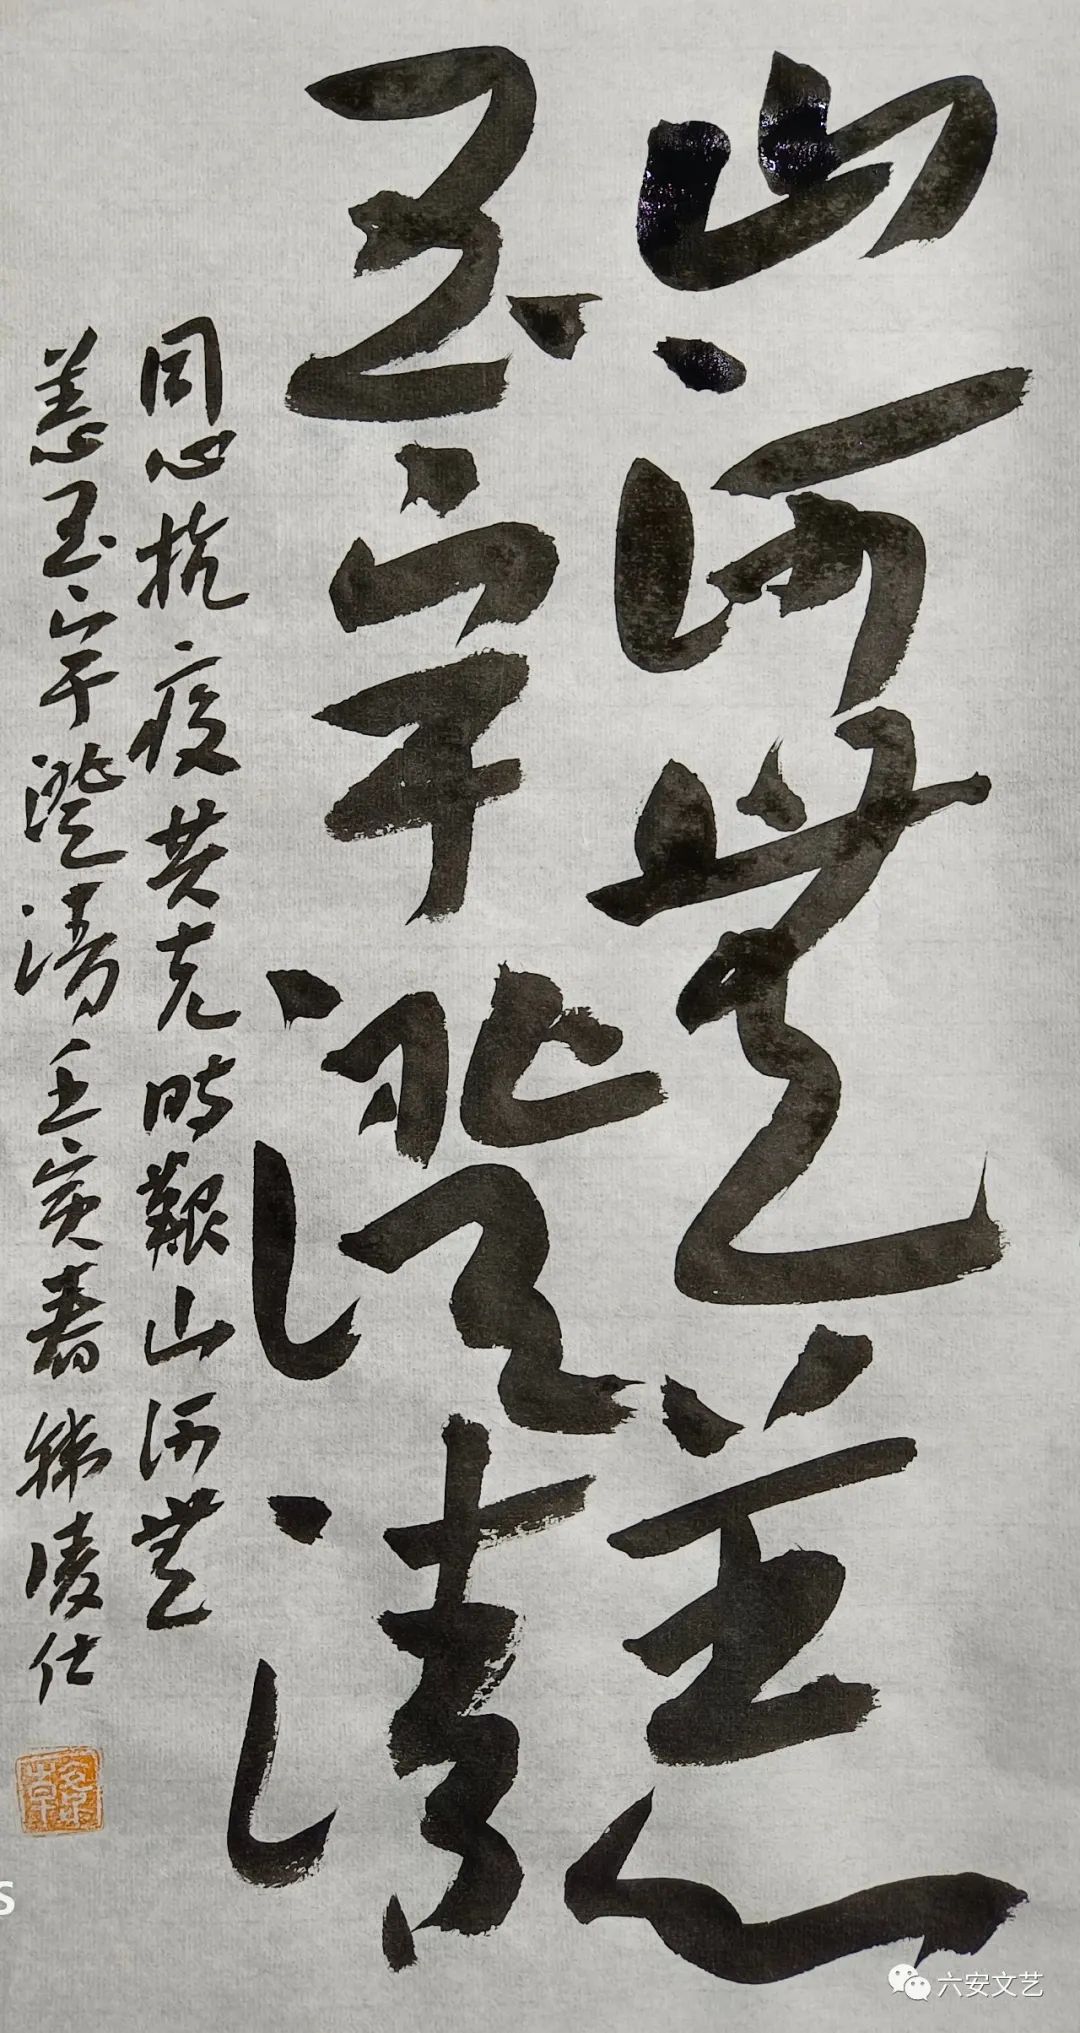 山河無恙
玉宇澄清
同心抗疫共克時艱山河無
恙玉宇澄清壬寅春韩陵仕
六安文艺
S